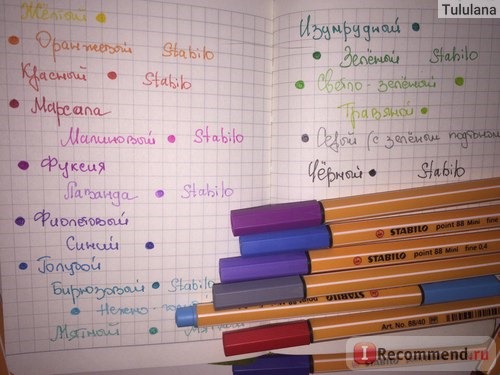 Жёлтый
Оранжевый Stabilo
Красный Stabilo
Марсала
Малиновый Stabilo
Фуксия
Лаванда Stabilo
Фиолетовый
Синий
Голубой
Бирюзовый Stabilo
Нежно-голубой
Мятный
Изумрудный
Зелёный Stabilo
Светло-зелёный
Травяной
Серый (с зелёным подтоном
Чёрный Stabilo
STABILO point 88 Mini fine
STABILO point 88 Mini fine 0,4
STABILO
Art. No. 88/40
Tululana
IRecommend.ru